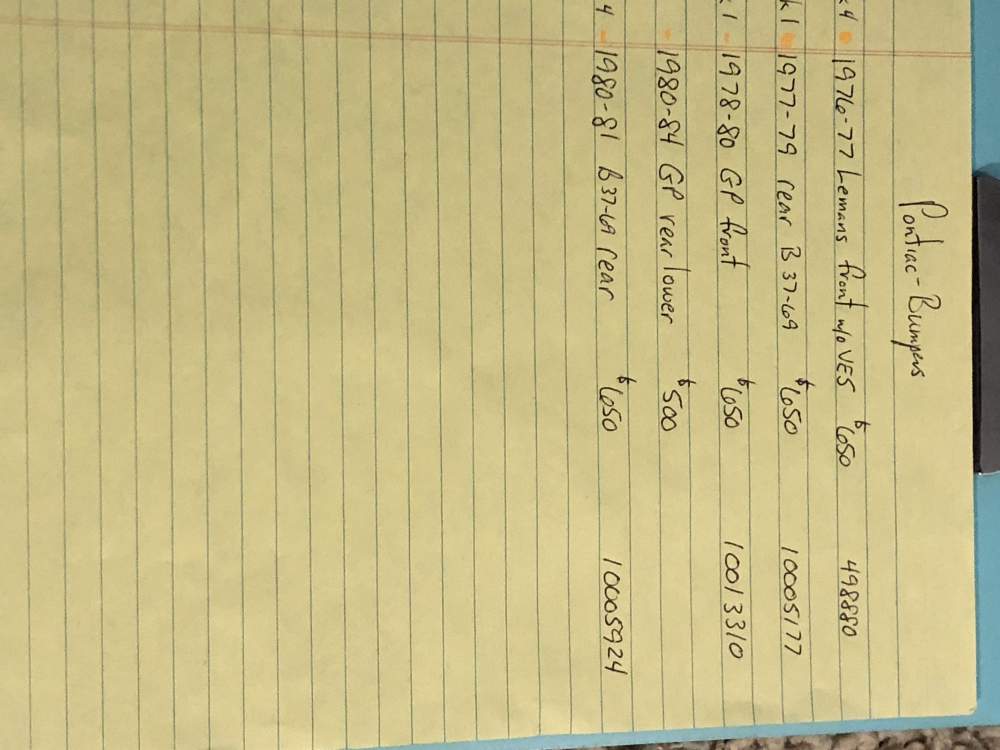 Pontiac - Bumpers
4 - 1976-77 Lemans front w/o VES $650 498880
k 1 - 1977-79 rear B 37-69 $650 10005177
k 1 - 1978-80 GP front $650 10013310
- 1980-84 GP rear lower $500
4 - 1980-81 B 37-69 rear $650 10005924